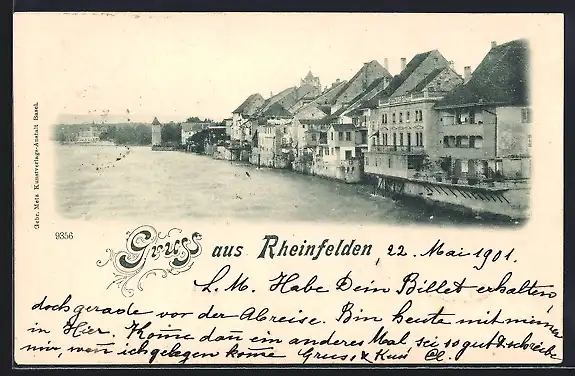 Gebr. Metz Kunstverlags-Anstalt Basel.
9356
Gruss aus Rheinfelden, 22. Mai 1901.
L. M. Habe Dein Billet erhalten,
doch gerade vor der Abreise. Bin heute mit meiner
in Hier. Kome dan ein anderes Mal, sei so gut & schreibe
mir, wen ich gelegen kome Gruss & Kuss Cl.